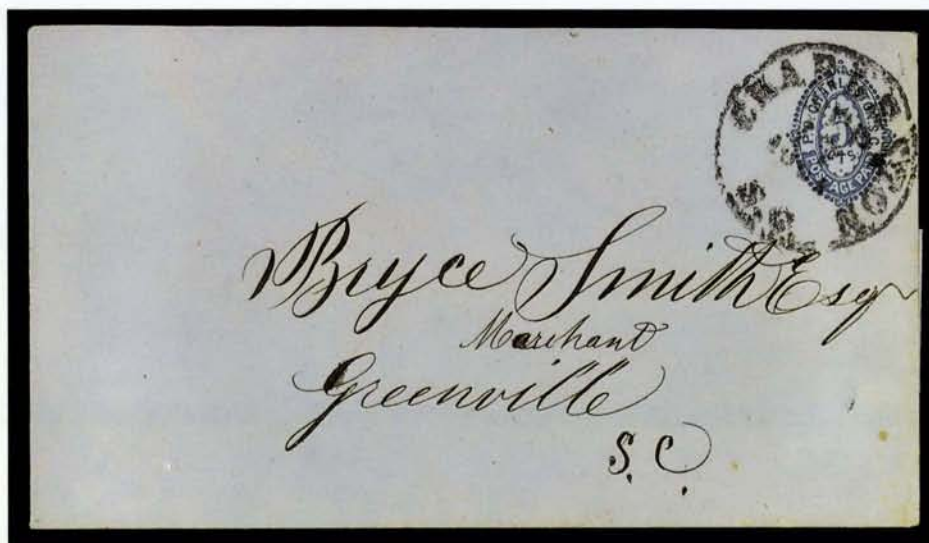 CHARLESTON
S.C.
P.O. CHARLESTON, S.C.
5
CTS
POSTAGE PAID
Bryce Smith Esq
Merchant
Greenville
S. C.